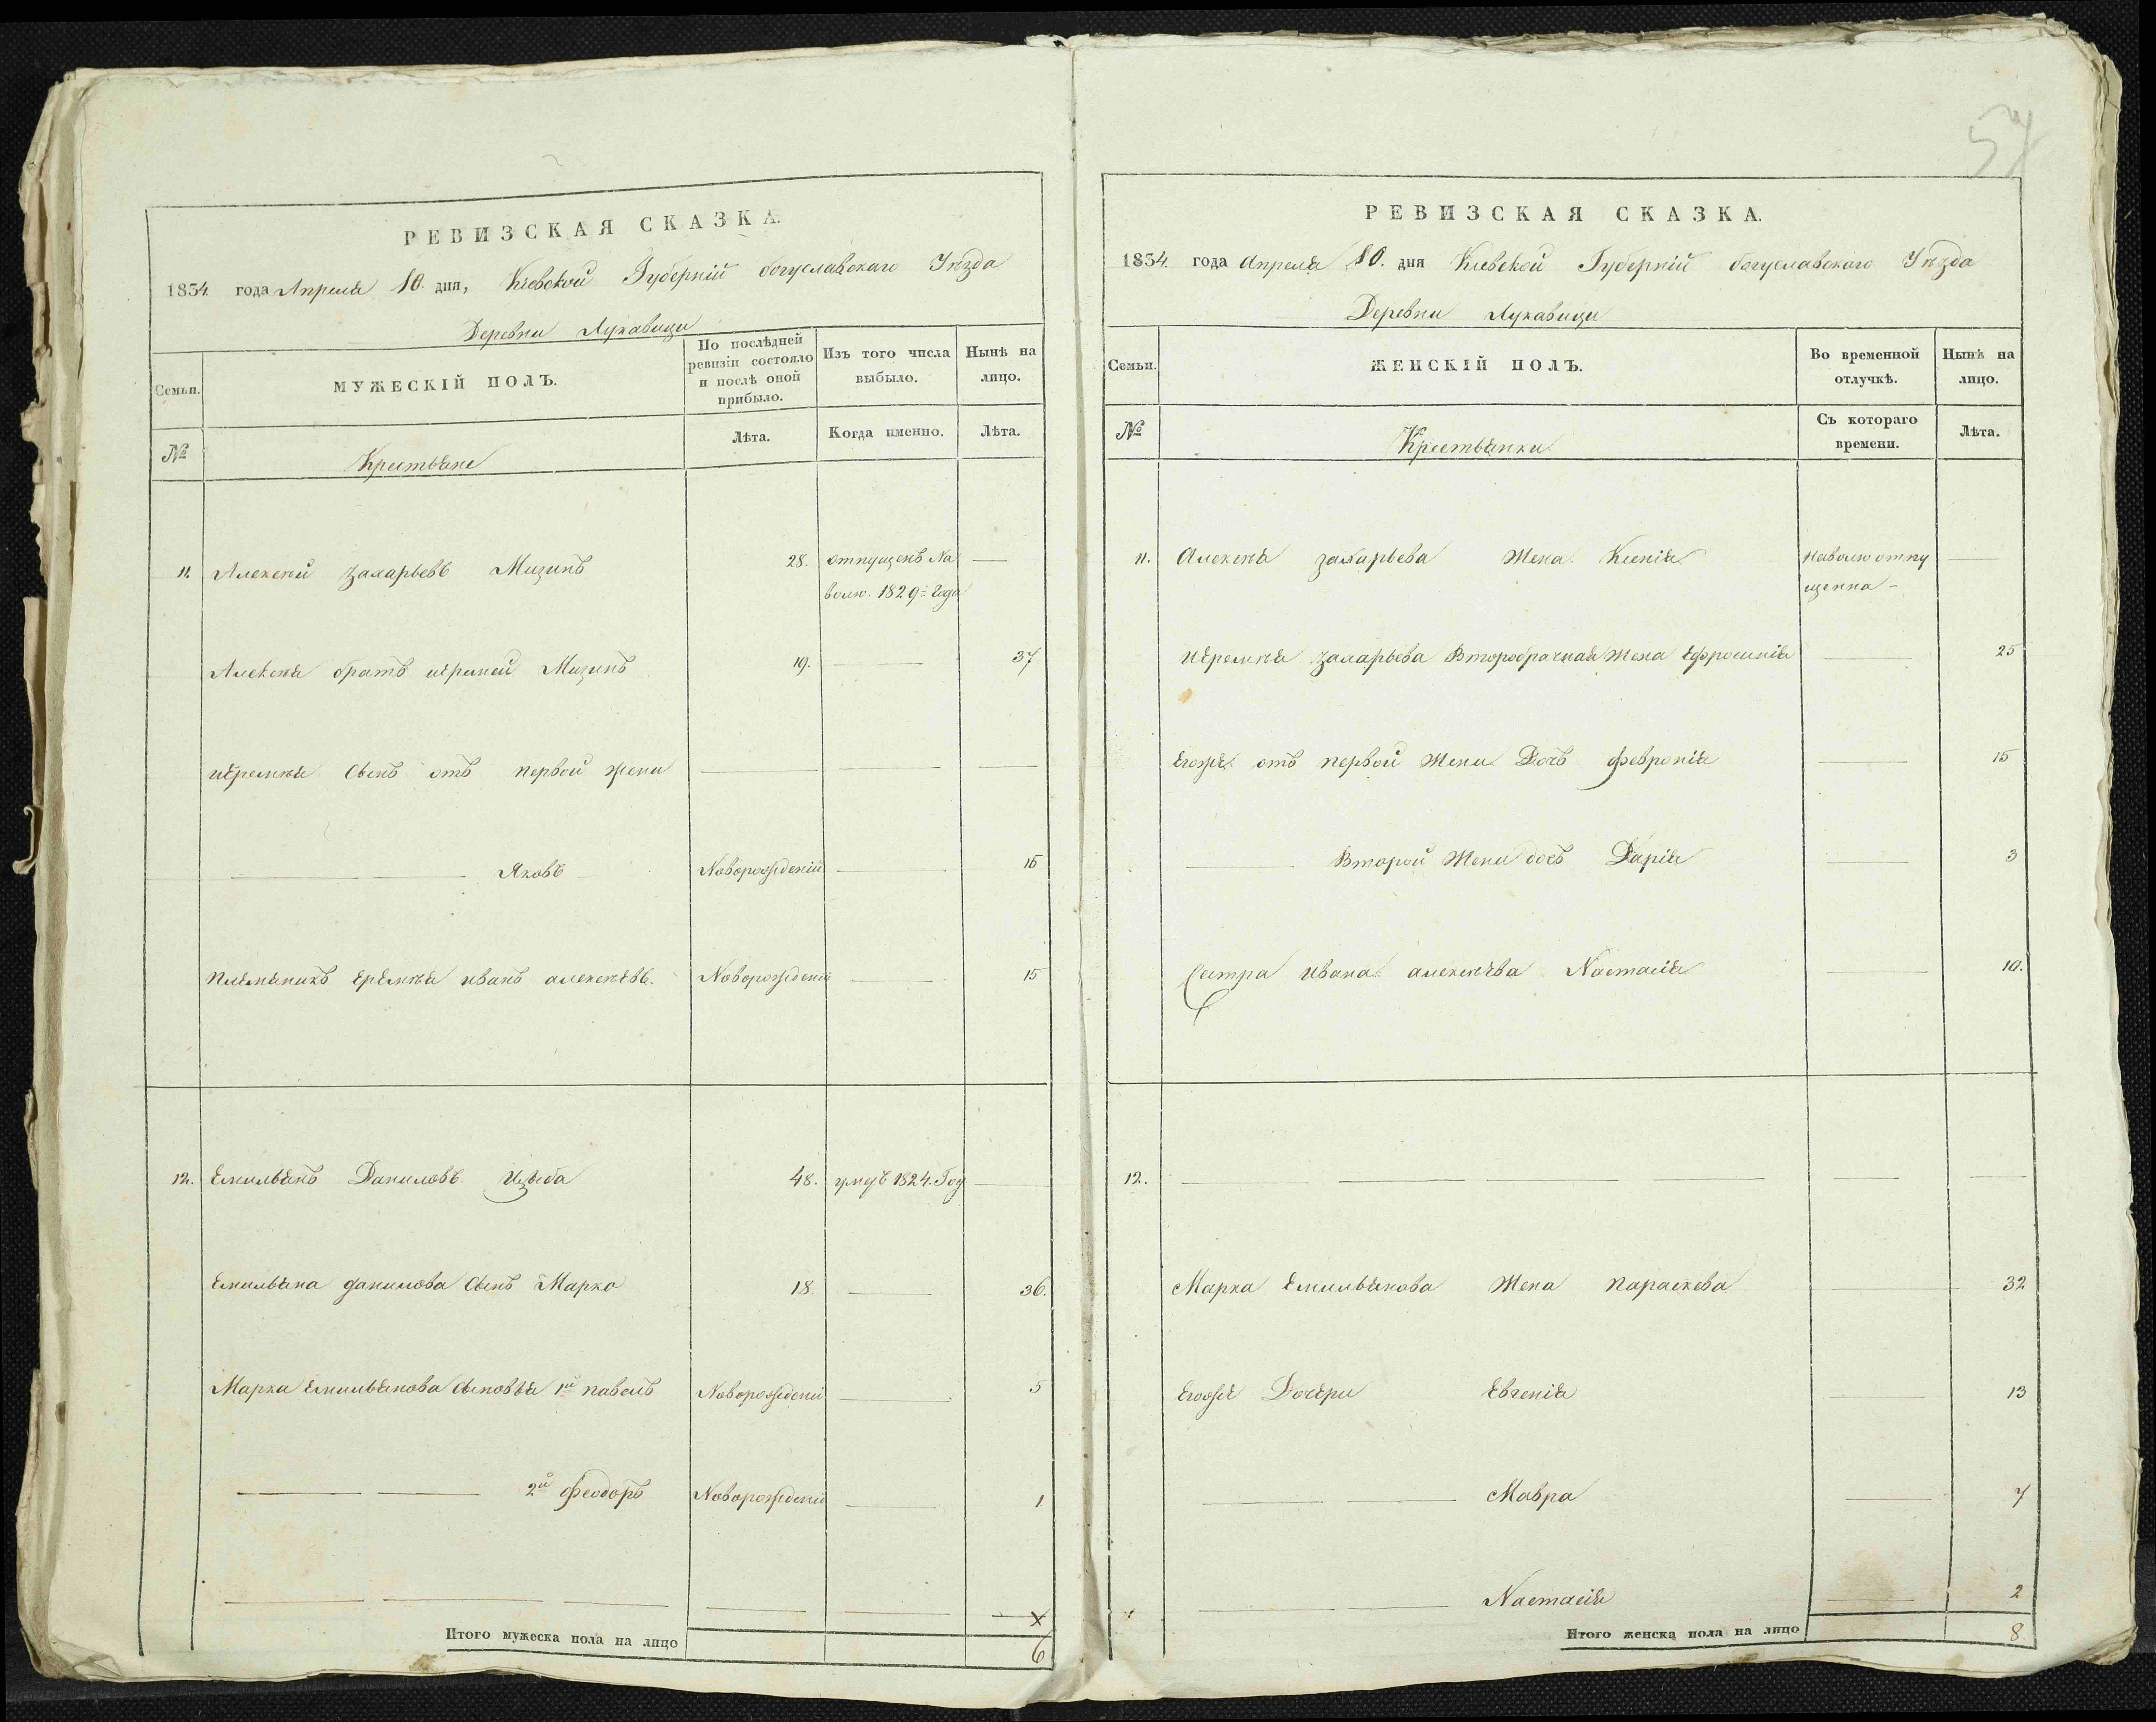 57
РЕВИЗСКАЯ СКАЗКА.
1834. года Апреля 10. дня, Кіевской Губерніи богуславскаго Уезда
Деревни Лукавици
Семьи.
МУЖЕСКІЙ ПОЛЪ.
По послѣдней ревизіи состояло и послѣ оной прибыло.
Изъ того числа выбыло.
Нынѣ на лицо.
№
Крестьяне
Лѣта.
Когда именно.
Лѣта.
11. Алексей Захарьевъ Мизинъ 28. отпущенъ На —
волю. 1829 = Года
Алексея братъ иеремей Мизинъ 19. — 37
иеремея Сынъ отъ первой жени — — —
— — Яковъ Новорожденій — 16
Племеникъ еремея иванъ алексеевъ. Новорожденій — 15
12. Емильянъ Даниловъ Цыба 48. умеръ 1824. Год —
Емильяна данилова Сынъ Марко 18 — 36.
Марка Емильянова Сыновья 1й павелъ Новорожденій — 5
— — 2й феодоръ Новорожденій — 1
— — — — — — х
Итого мужеска пола на лицо 6
РЕВИЗСКАЯ СКАЗКА.
1834. года Апреля 10. дня Кіевской Губерніи богуславскаго Уезда
Деревни Лукавици
Семьи.
ЖЕНСКІЙ ПОЛЪ.
Во временной отлучкѣ.
Нынѣ на лицо.
№
Крестьянки
Съ котораго времени.
Лѣта.
11. Алексея захарьева Жена Ксенія Наволю отпу —
щенна –
иеремея захарьева Второбрачная Жена Ефросинія — 25
Егоже отъ первой Жени Дочь февронія — 15
— Второй Жени дочь Дарія — 3
Сестра ивана алексеева Настасія — 10.
12. — — — — —
Марка Емильянова Жена параскева — 32
Егоже Дочери Евгенія — 13
— — Мавра — 7
— — Настасія — 2
Итого женска пола на лицо 8